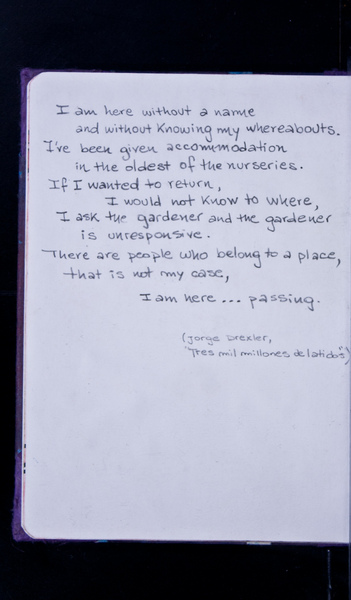 I am here without a name
and without Knowing my whereabouts.
I've been given accommodation
in the oldest of the nurseries.
If I wanted to return,
I would not Know to where,
I ask the gardener and the gardener
is unresponsive.
There are people who belong to a place,
that is not my case,
I am here ... passing.
(Jorge Drexler,
"Tres mil millones de latidos")